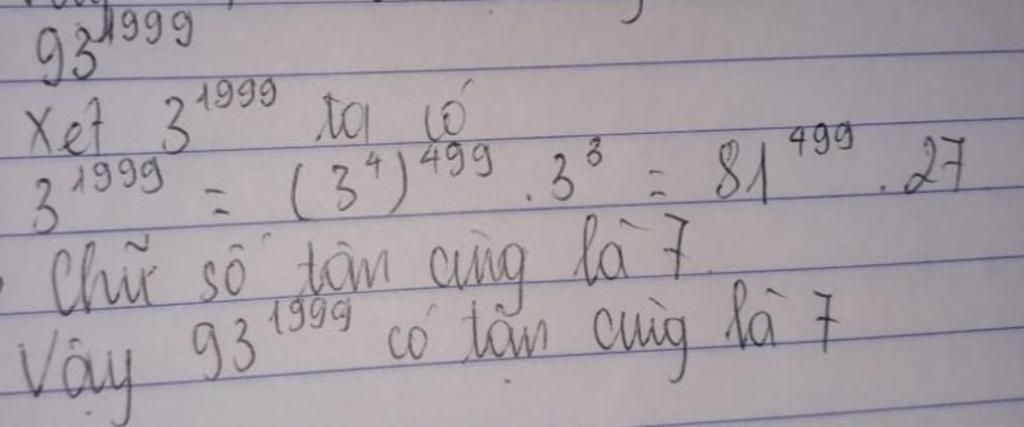 93¹⁹⁹⁹
Xét 3¹⁹⁹⁹ ta có
3¹⁹⁹⁹ = (3⁴)⁴⁹⁹ . 3³ = 81⁴⁹⁹ . 27
Chữ số tận cùng là 7.
Vậy 93¹⁹⁹⁹ có tận cùng là 7